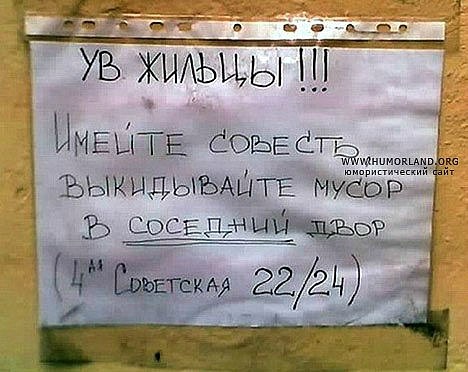 УВ ЖИЛЬЦЫ!!!
ИМЕЙТЕ СОВЕСТЬ
WWW.HUMORLAND.ORG
юмористический сайт
ВЫКИДЫВАЙТЕ МУСОР
В СОСЕДНИЙ ДВОР
(4ая СОВЕТСКАЯ 22/24)